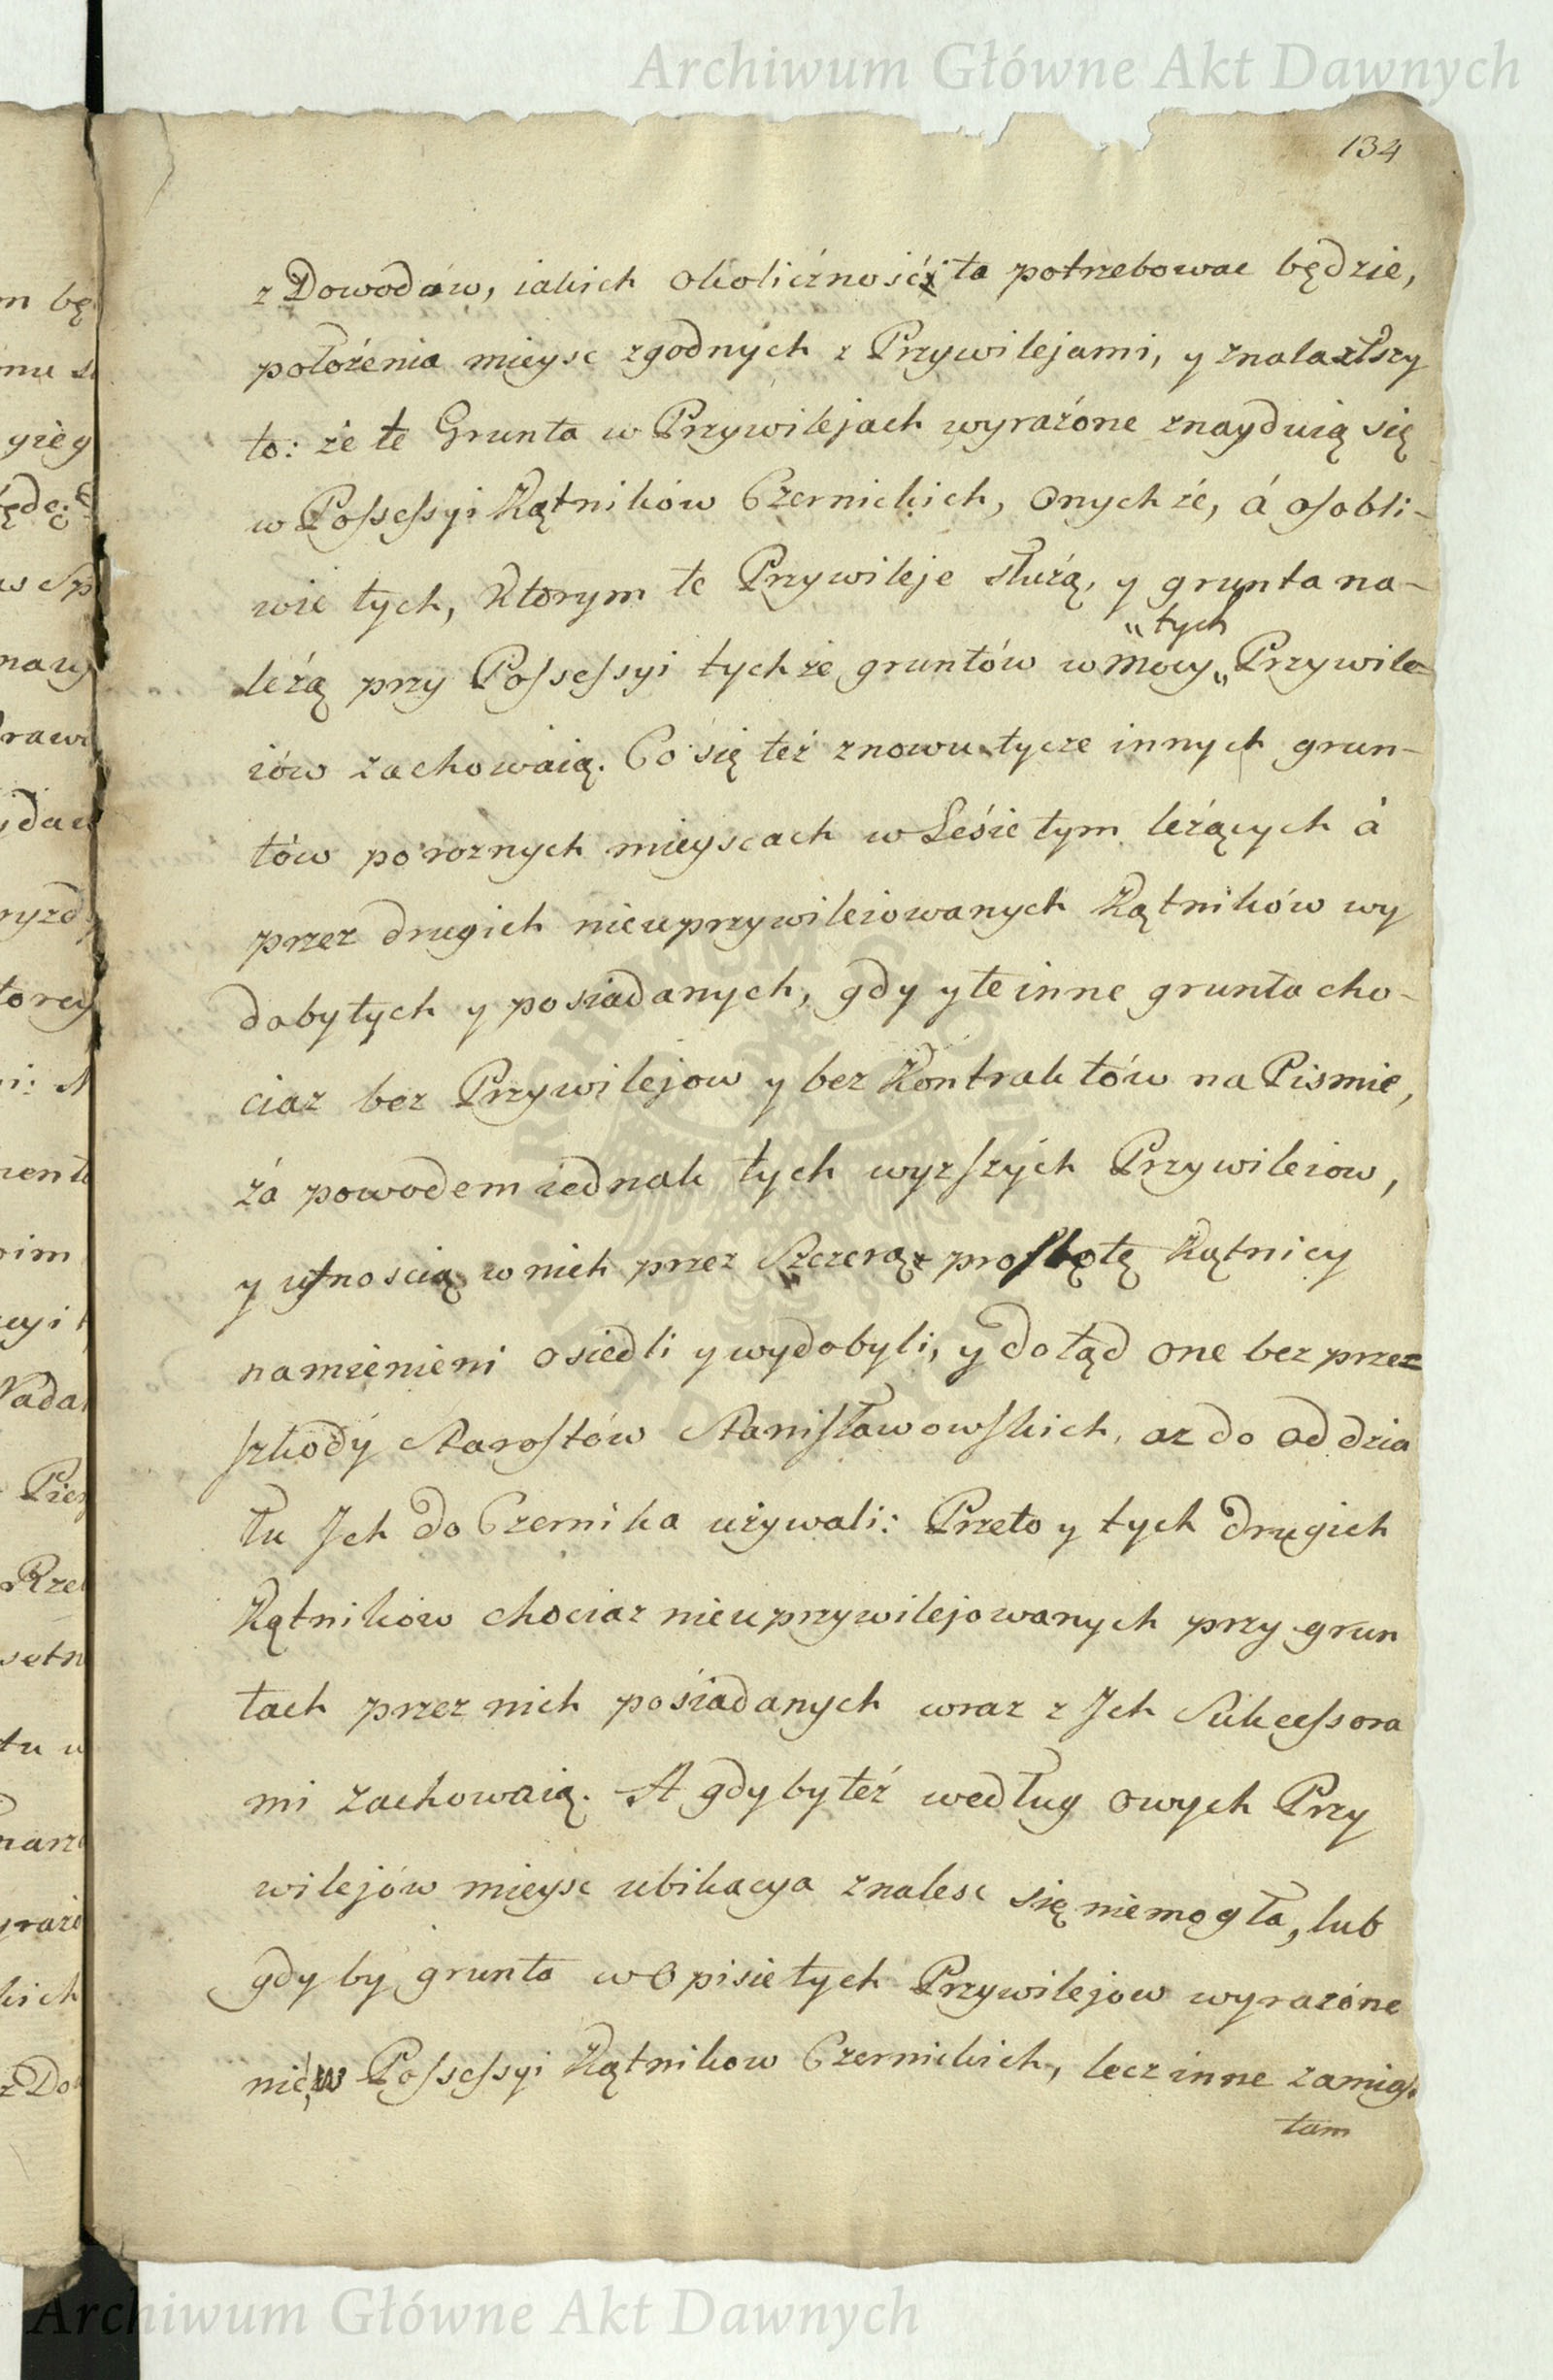 Archiwum Główne Akt Dawnych
134
z Dowodów, iakich okoliczność ta potrzebowac będzie,
położenia mieysc zgodnych z Przywilejami, y znalazłszy
to: że te Grunta w Przywilejach wyrażone znayduią się
w Possessyi Kątników Czernickich, onychże, á osobli-
wie tych, Ktorym te Przywileje służą, y grunta na-
„tych
leżą przy Possessyi tychże gruntów w mocy„ Przywile-
iów zachowaią. Co się też znowu tycze innych grun-
tów po roznych mieyscach w Leśie tym leżących á
przez drugich nieuprzywileiowanych Kątników wy
dobytych y posiadanych, gdy y te inne grunta cho-
ciaz bez Przywilejow y bez Kontraktów na Pismie,
zá powodem iednak tych wyzszych Przywileiow,
y ufnością w nich przez Szczerą prostotę Kątnicy
namienieni osiedli y wydobyli, y dotąd one bez prze-
szkody Starostów Stanisławowskich, az do oddzia
łu Jch do Czernika używali: Przeto y tych drugich
Kątników chociaz nieuprzywilejowanych przy grun
tach przez nich posiadanych wraz z Jch Sukcessora
mi zachowaią. A gdyby też według owych Przy
wilejów mieysc ubikacya znalesc się niemogła, lub
gdyby grunta w Opisie tych Przywilejow wyrażone
nie, w Possessyi Kątnikow Czernickich, lecz inne zamias.
tam
Archiwum Główne Akt Dawnych